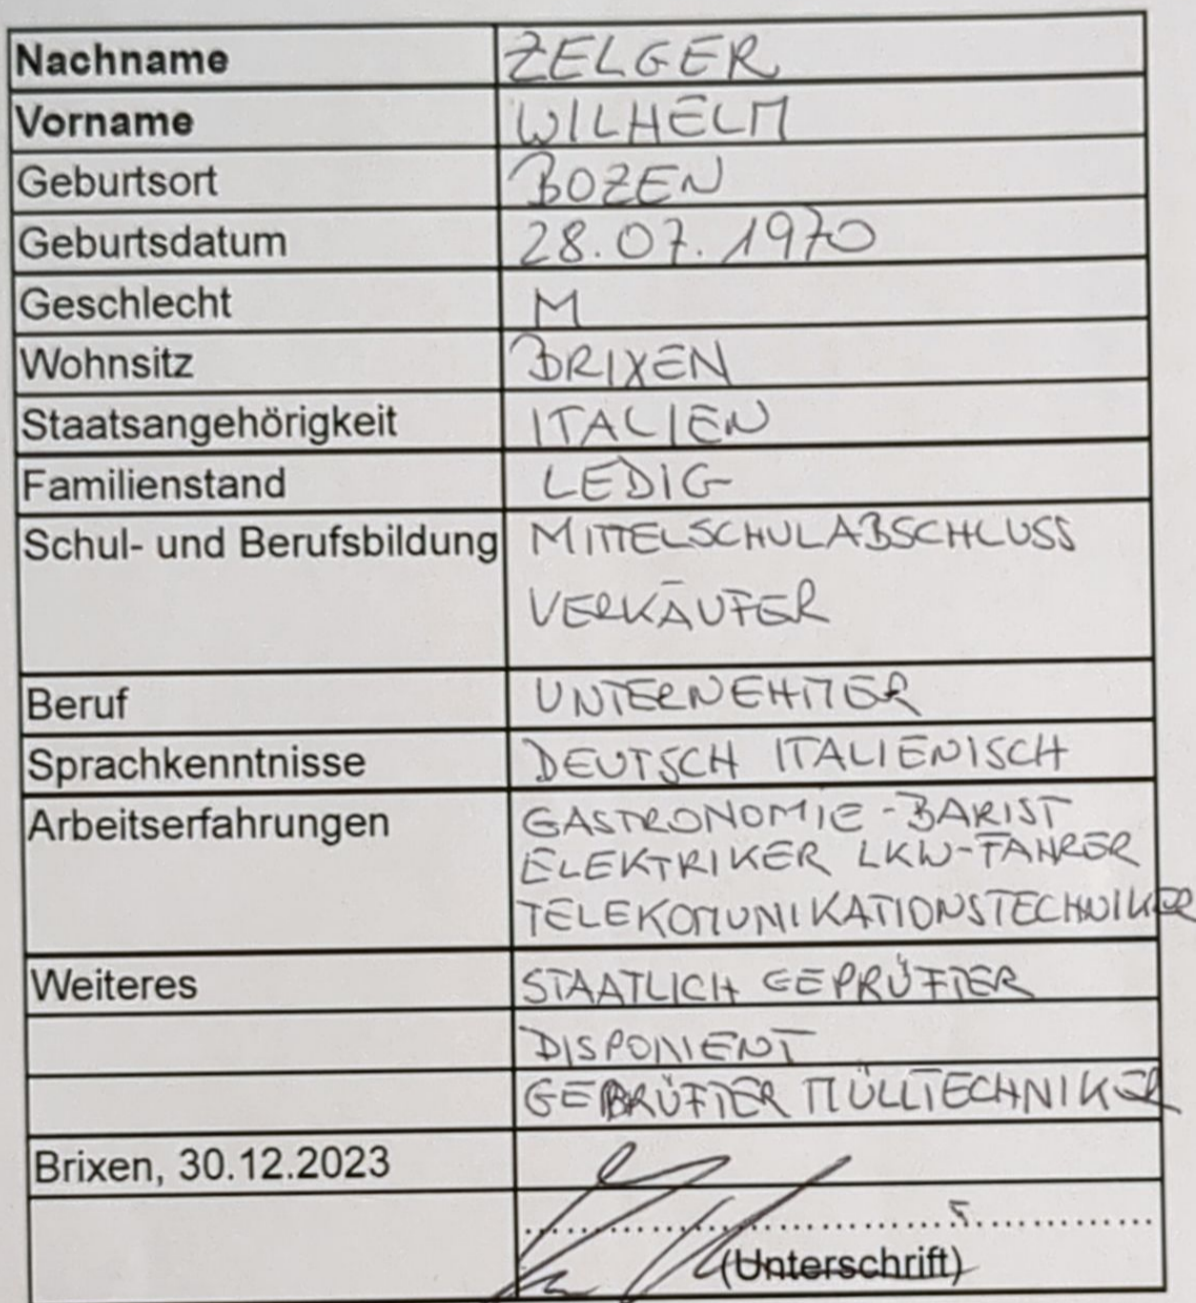 Nachname ZELGER
Vorname WILHELM
Geburtsort BOZEN
Geburtsdatum 28.07.1970
Geschlecht M
Wohnsitz BRIXEN
Staatsangehörigkeit ITALIEN
Familienstand LEDIG
Schul- und Berufsbildung MITTELSCHULABSCHLUSS
VERKÄUFER
Beruf UNTERNEHMER
Sprachkenntnisse DEUTSCH ITALIENISCH
Arbeitserfahrungen GASTRONOMIE-BARIST
ELEKTRIKER LKW-FAHRER
TELEKOMUNIKATIONSTECHNIKER
Weiteres STAATLICH GEPRÜFTER
DISPONENT
GEPRÜFTER MÜLLTECHNIKER
Brixen, 30.12.2023
(Unterschrift)